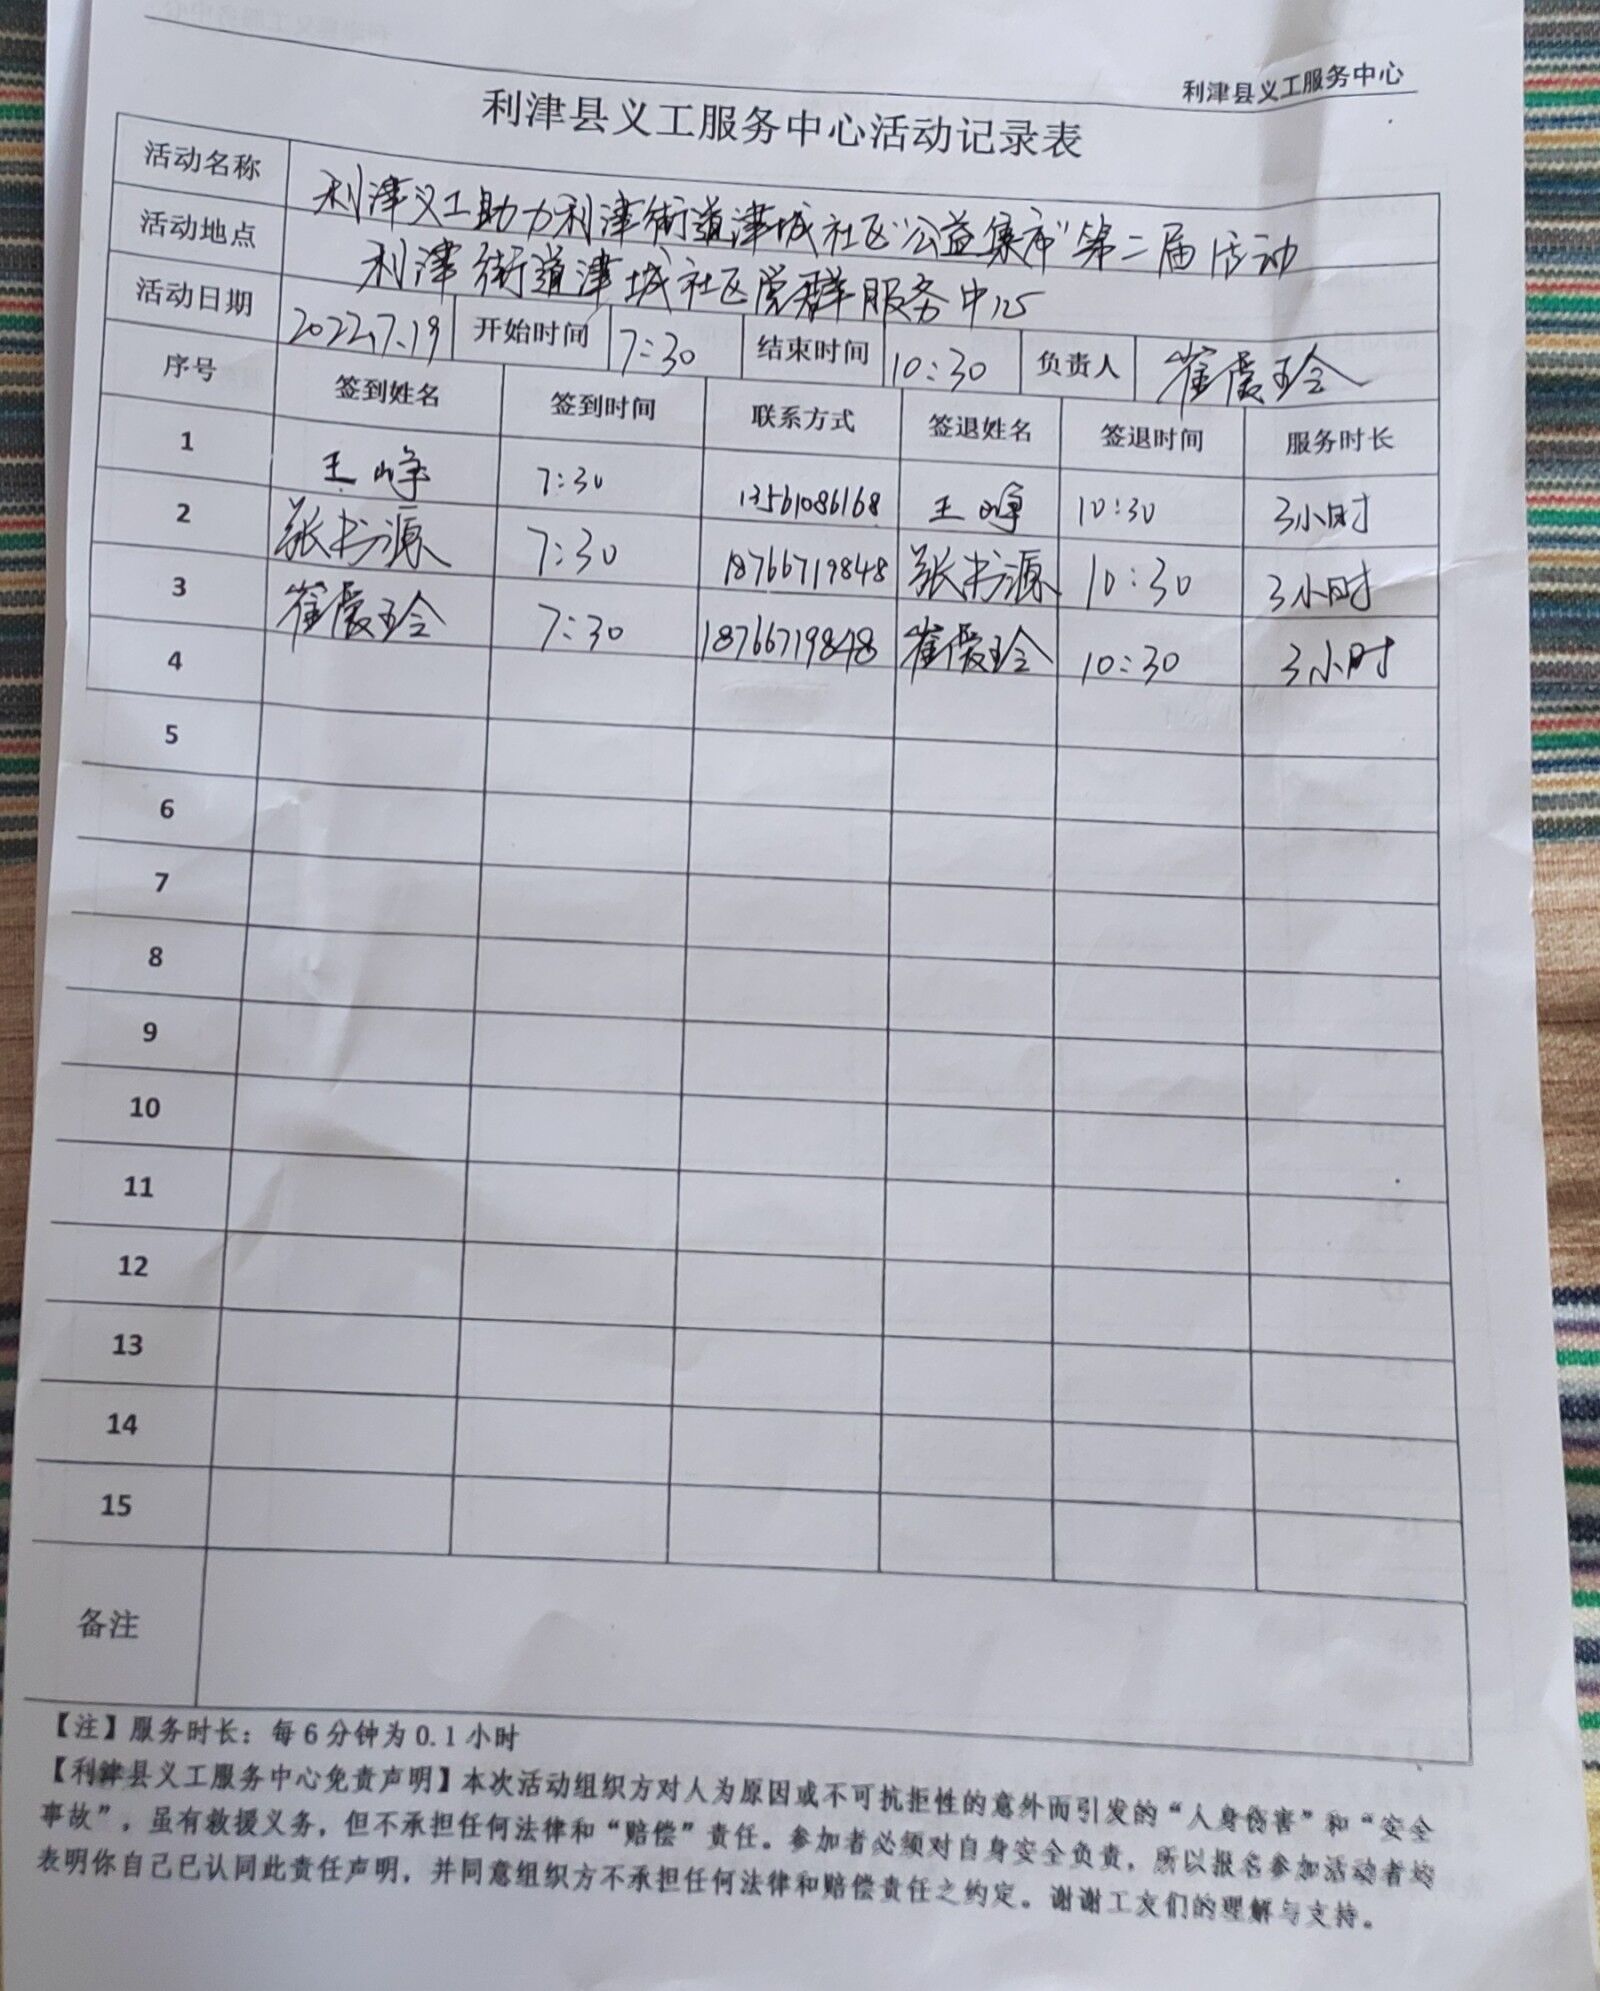 利津县义工服务中心
利津县义工服务中心活动记录表
活动名称 利津义工助力利津街道津城社区“公益集市”第二届活动
活动地点 利津街道津城社区党群服务中心
活动日期 2022.7.19 开始时间 7:30 结束时间 10:30 负责人 崔爱玲
序号 签到姓名 签到时间 联系方式 签退姓名 签退时间 服务时长
1 王峥 7:30 13561086168 王峥 10:30 3小时
2 张书源 7:30 18766719848 张书源 10:30 3小时
3 崔爱玲 7:30 18766719848 崔爱玲 10:30 3小时
4
5
6
7
8
9
10
11
12
13
14
15
备注
【注】服务时长：每6分钟为0.1小时
【利津县义工服务中心免责声明】本次活动组织方对人为原因或不可抗拒性的意外而引发的“人身伤害”和“安全
事故”，虽有救援义务，但不承担任何法律和“赔偿”责任。参加者必须对自身安全负责，所以报名参加活动者均
表明你自己已认同此责任声明，并同意组织方不承担任何法律和赔偿责任之约定。谢谢工友们的理解与支持。